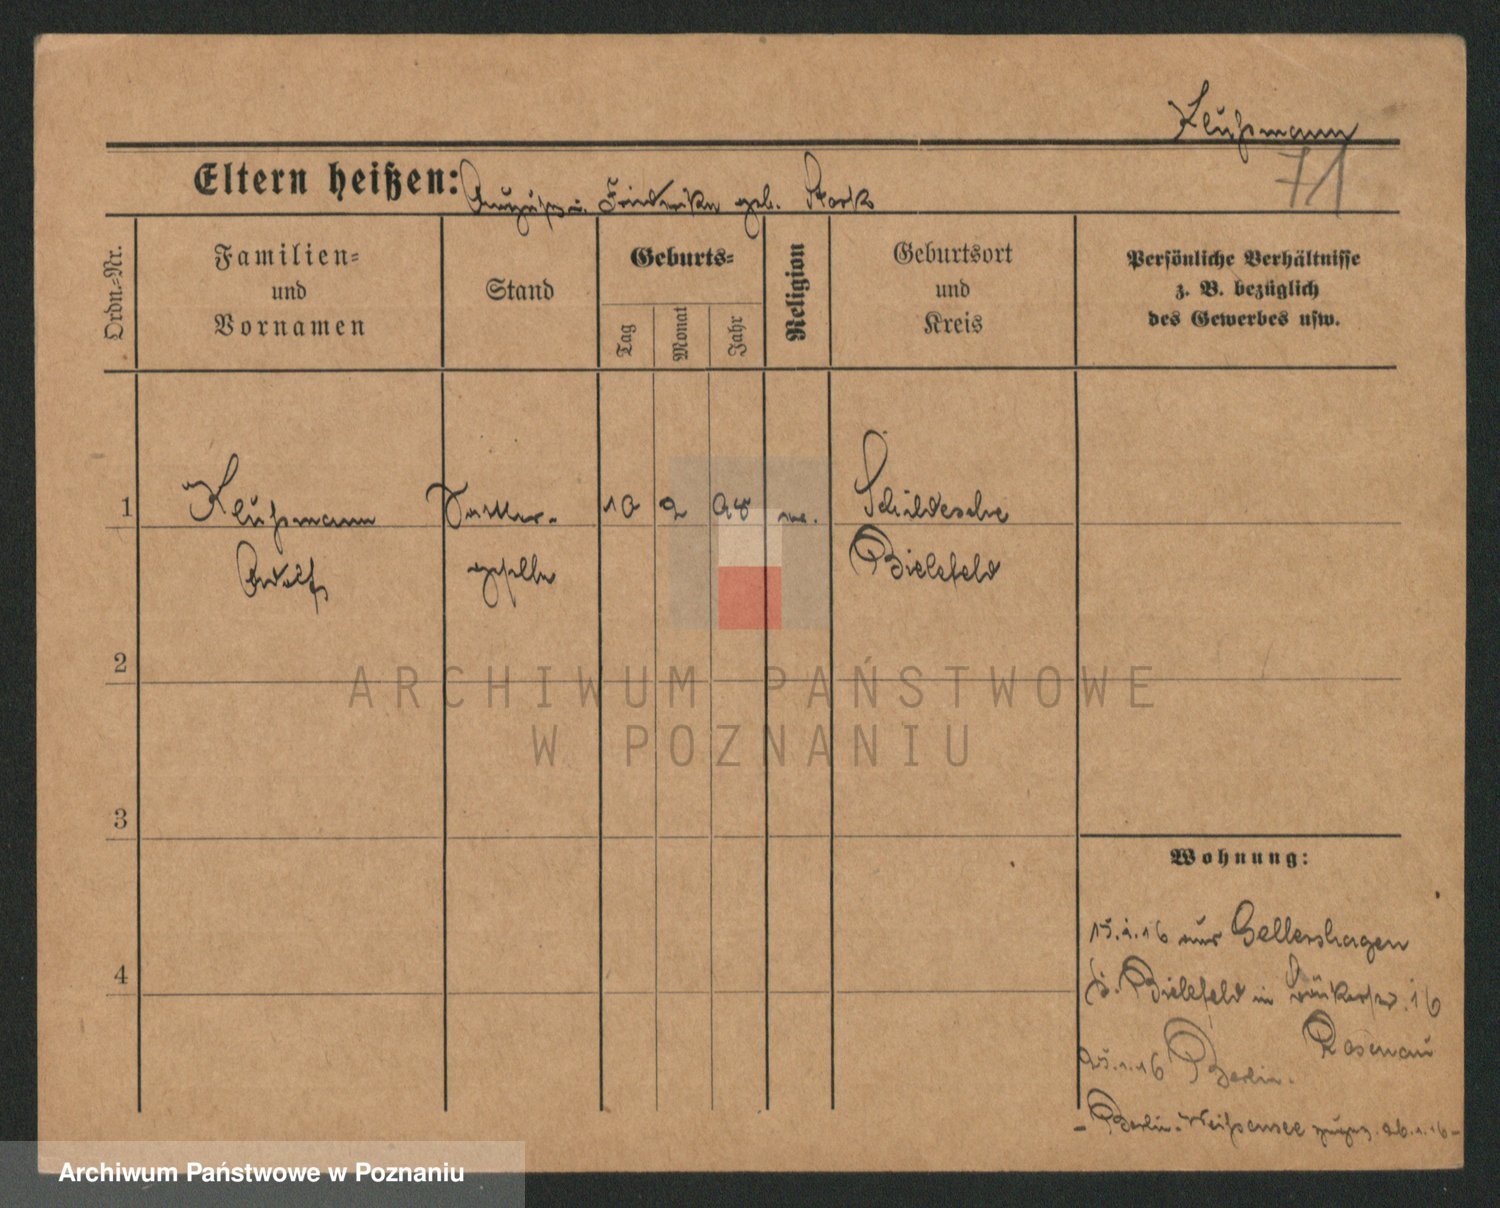 Klußmann
71
Eltern heißen: August u. Friederike geb. Stork
Ordn.=Nr.
Familien=
und
Vornamen
Stand
Geburts=
Tag
Monat
Jahr
Religion
Geburtsort
und
Kreis
Persönliche Verhältnisse
z. B. bezüglich
des Gewerbes usw.
1 Klußmann Sattler- 10 2 98 ev. Schildesche
Adolf geselle Bielefeld
2
3
4
Wohnung:
15.1.16 aus Gellershagen
b. Bielefeld in 16
Rosenau
25.1.16 Berlin.
- Berlin-Weißensee zugez. 26.1.16 -
ARCHIWUM PAŃSTWOWE
W POZNANIU
Archiwum Państwowe w Poznaniu